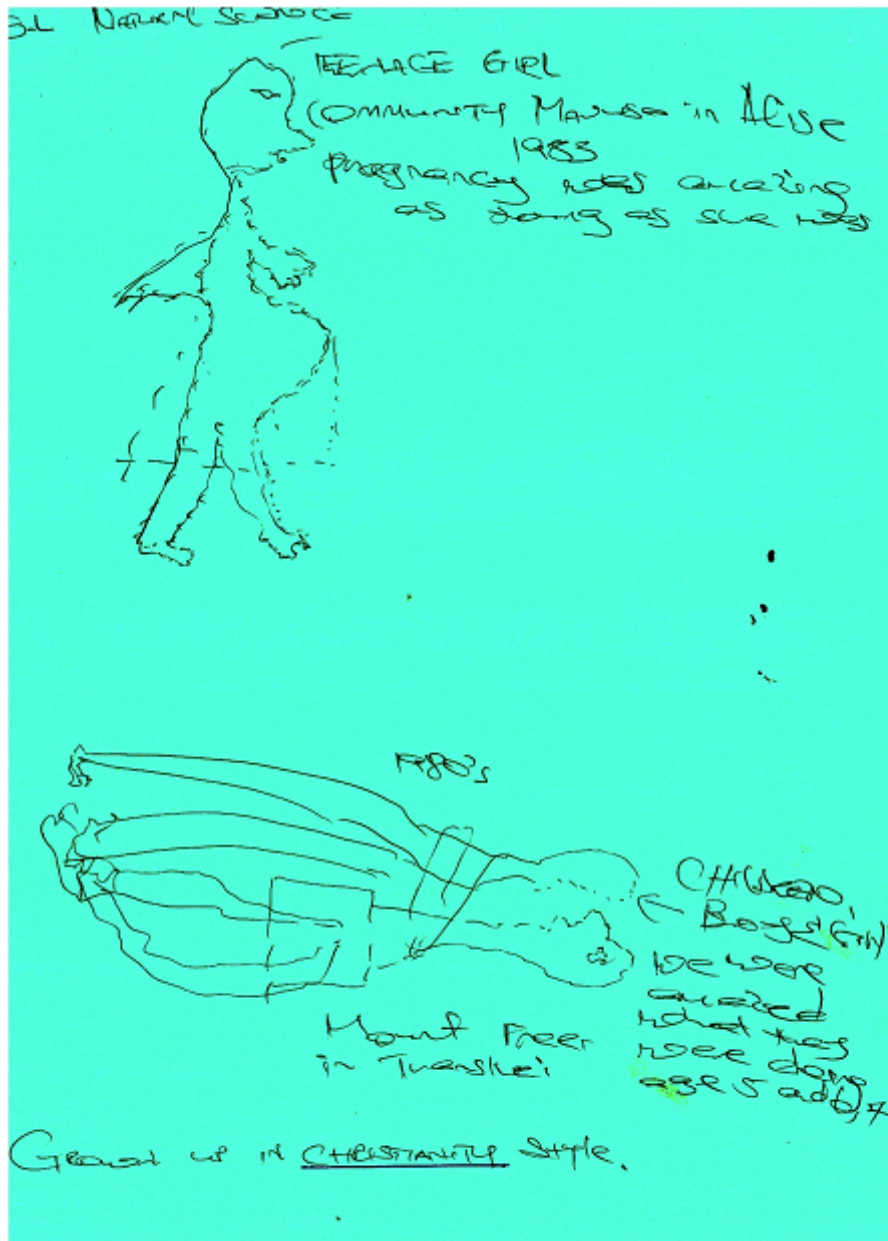 3.2 NATURAL SCIENCE
TEENAGE GIRL
COMMUNITY in Alice
1983
Pregnancy was amazing
as young as she was
1980's
CHILDREN,
Boys
we were
amazed
what they
were doing
age 5 and 6,
Mount Freer
in Transkei
GROWN UP IN CHRISTIANITY Style.